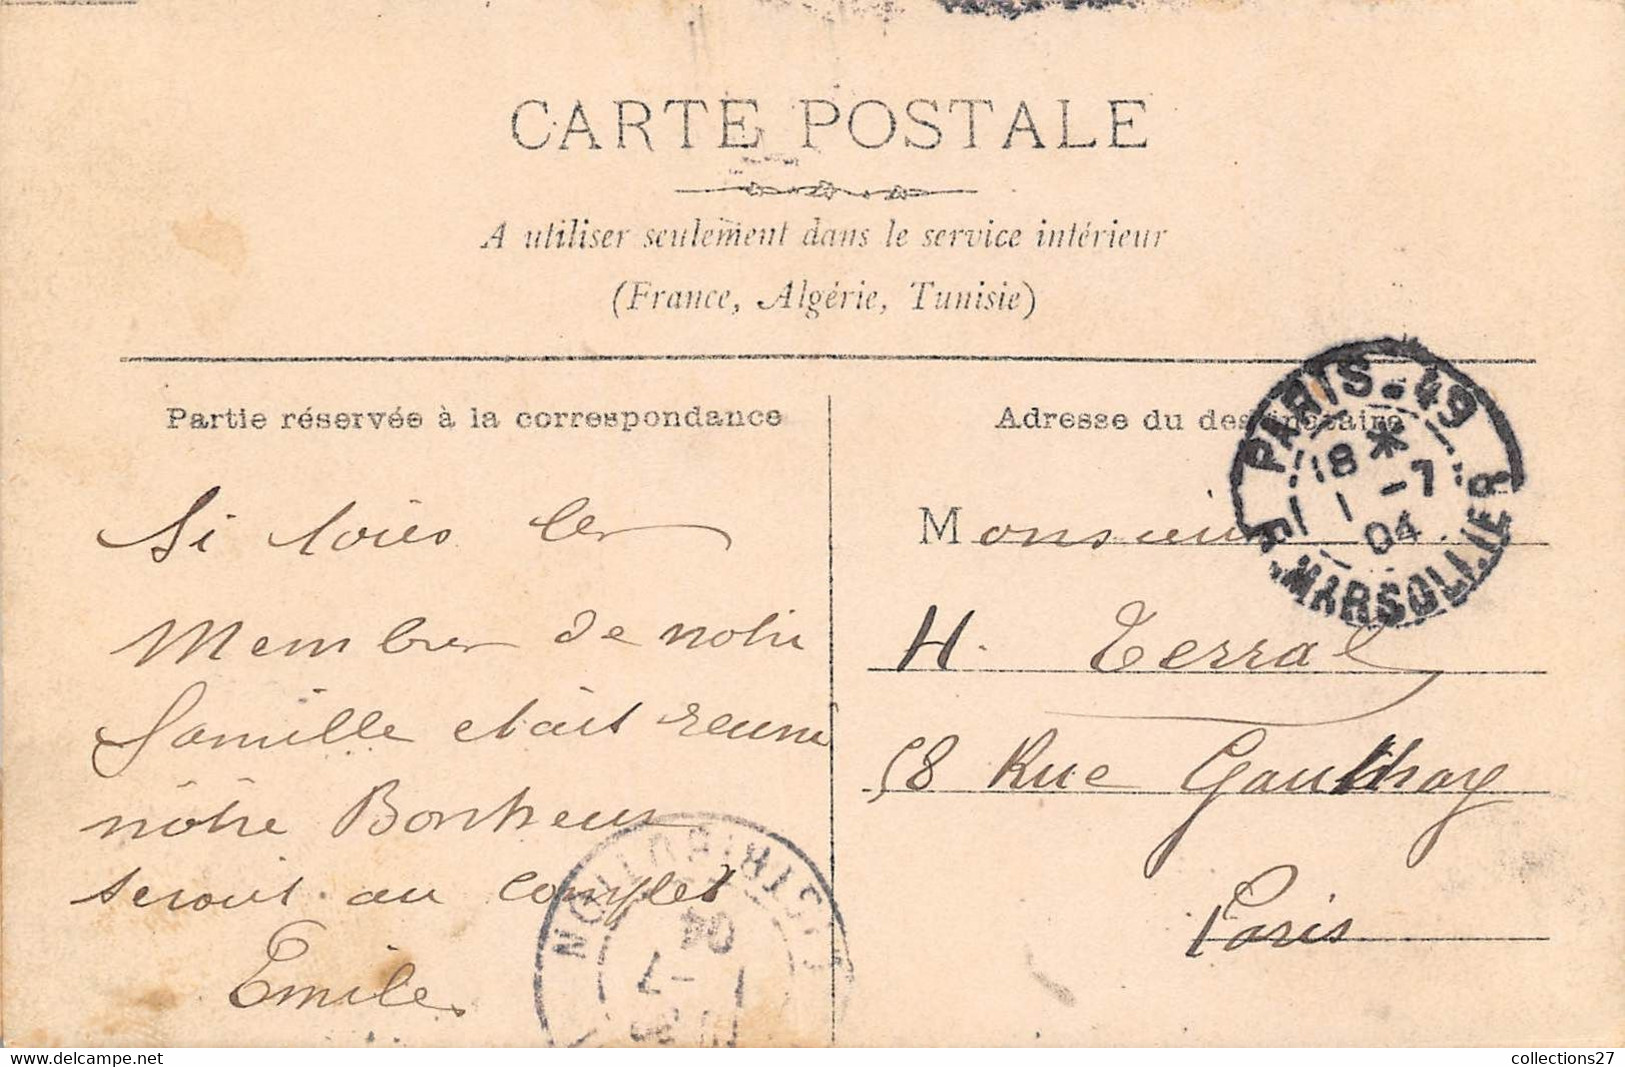 CARTE POSTALE
A utiliser seulement dans le service intérieur
(France, Algérie, Tunisie)
Partie réservée à la correspondance
Si toies les
Membres de notre
famille etait reuni
nôtre Bonheur
serait au complet
Emile
Adresse du destinataire
Monsieur
H. Terral
58 Rue Gauthey
Paris
PARIS-49
18 * 1 -7 04
R. MARSOLLIER
DISTRIBUTION
1 -7 04
collections27